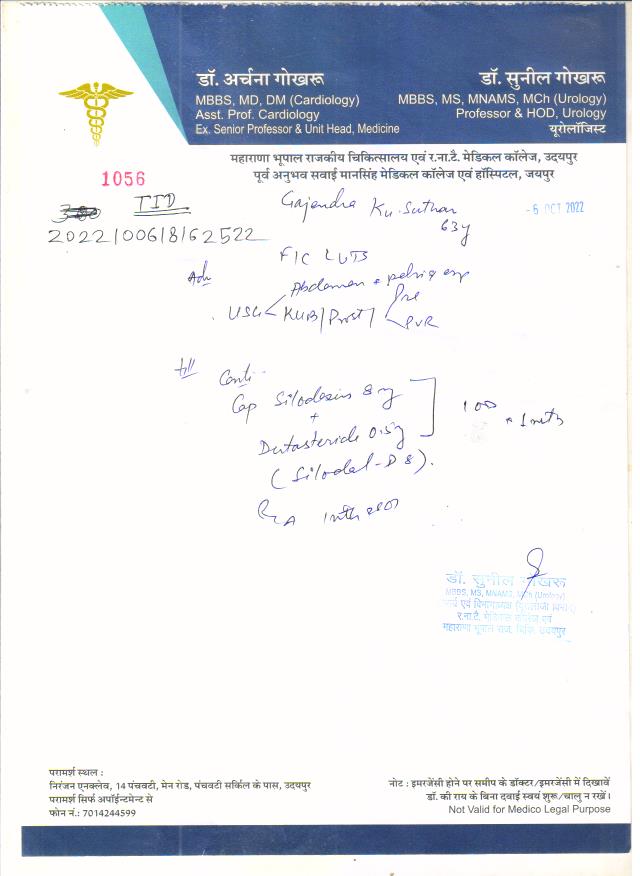 डॉ. अर्चना गोखरू
MBBS, MD, DM (Cardiology)
Asst. Prof. Cardiology
Ex. Senior Professor & Unit Head, Medicine
डॉ. सुनील गोखरू
MBBS, MS, MNAMS, MCh (Urology)
Professor & HOD, Urology
यूरोलॉजिस्ट
महाराणा भूपाल राजकीय चिकित्सालय एवं र.ना.टै. मेडिकल कॉलेज, उदयपुर
पूर्व अनुभव सवाई मानसिंह मेडिकल कॉलेज एवं हॉस्पिटल, जयपुर
1056
TID
Gajendra Ku. Suthar
63y
- 6 OCT 2022
2022/006/8/62522
LUTS
Adv
Abdomen + pelvis
USG KUB/Prost/ Pre
PVR
Conti
Cap Silodosin 8 mg
+
Dutasteride 0.5 mg
(Silodal-D 8).
डॉ. सुनील गोखरू
MBBS, MS, MNAMS, MCh (Urology)
र.ना.टै. मेडिकल कॉलेज एवं
महाराणा भूपाल राज. चिकि. उदयपुर
परामर्श स्थल :
निरंजन एनक्लेव, 14 पंचवटी, मेन रोड, पंचवटी सर्किल के पास, उदयपुर
परामर्श सिर्फ अपॉईन्टमेण्ट से
फोन नं.: 7014244599
नोट : इमरजेंसी होने पर समीप के डॉक्टर/इमरजेंसी में दिखावें
डॉ. की राय के बिना दवाई स्वयं शुरू/चालु न रखें।
Not Valid for Medico Legal Purpose